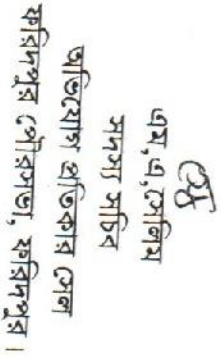 এম,এ,সেলিম
সদস্য সচিব
অভিযোগ প্রতিকার সেল
ফরিদপুর পৌরসভা, ফরিদপুর।